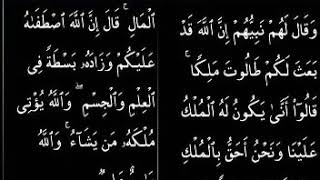 وَقَالَ لَهُمْ نَبِيُّهُمْ إِنَّ ٱللَّهَ قَدْ
بَعَثَ لَكُمْ طَالُوتَ مَلِكًا ۚ
قَالُوٓا۟ أَنَّىٰ يَكُونُ لَهُ ٱلْمُلْكُ
عَلَيْنَا وَنَحْنُ أَحَقُّ بِٱلْمُلْكِ
ٱلْمَالِ ۚ قَالَ إِنَّ ٱللَّهَ ٱصْطَفَىٰهُ
عَلَيْكُمْ وَزَادَهُۥ بَسْطَةً فِى
ٱلْعِلْمِ وَٱلْجِسْمِ ۖ وَٱللَّهُ يُؤْتِى
مُلْكَهُۥ مَن يَشَآءُ ۚ وَٱللَّهُ